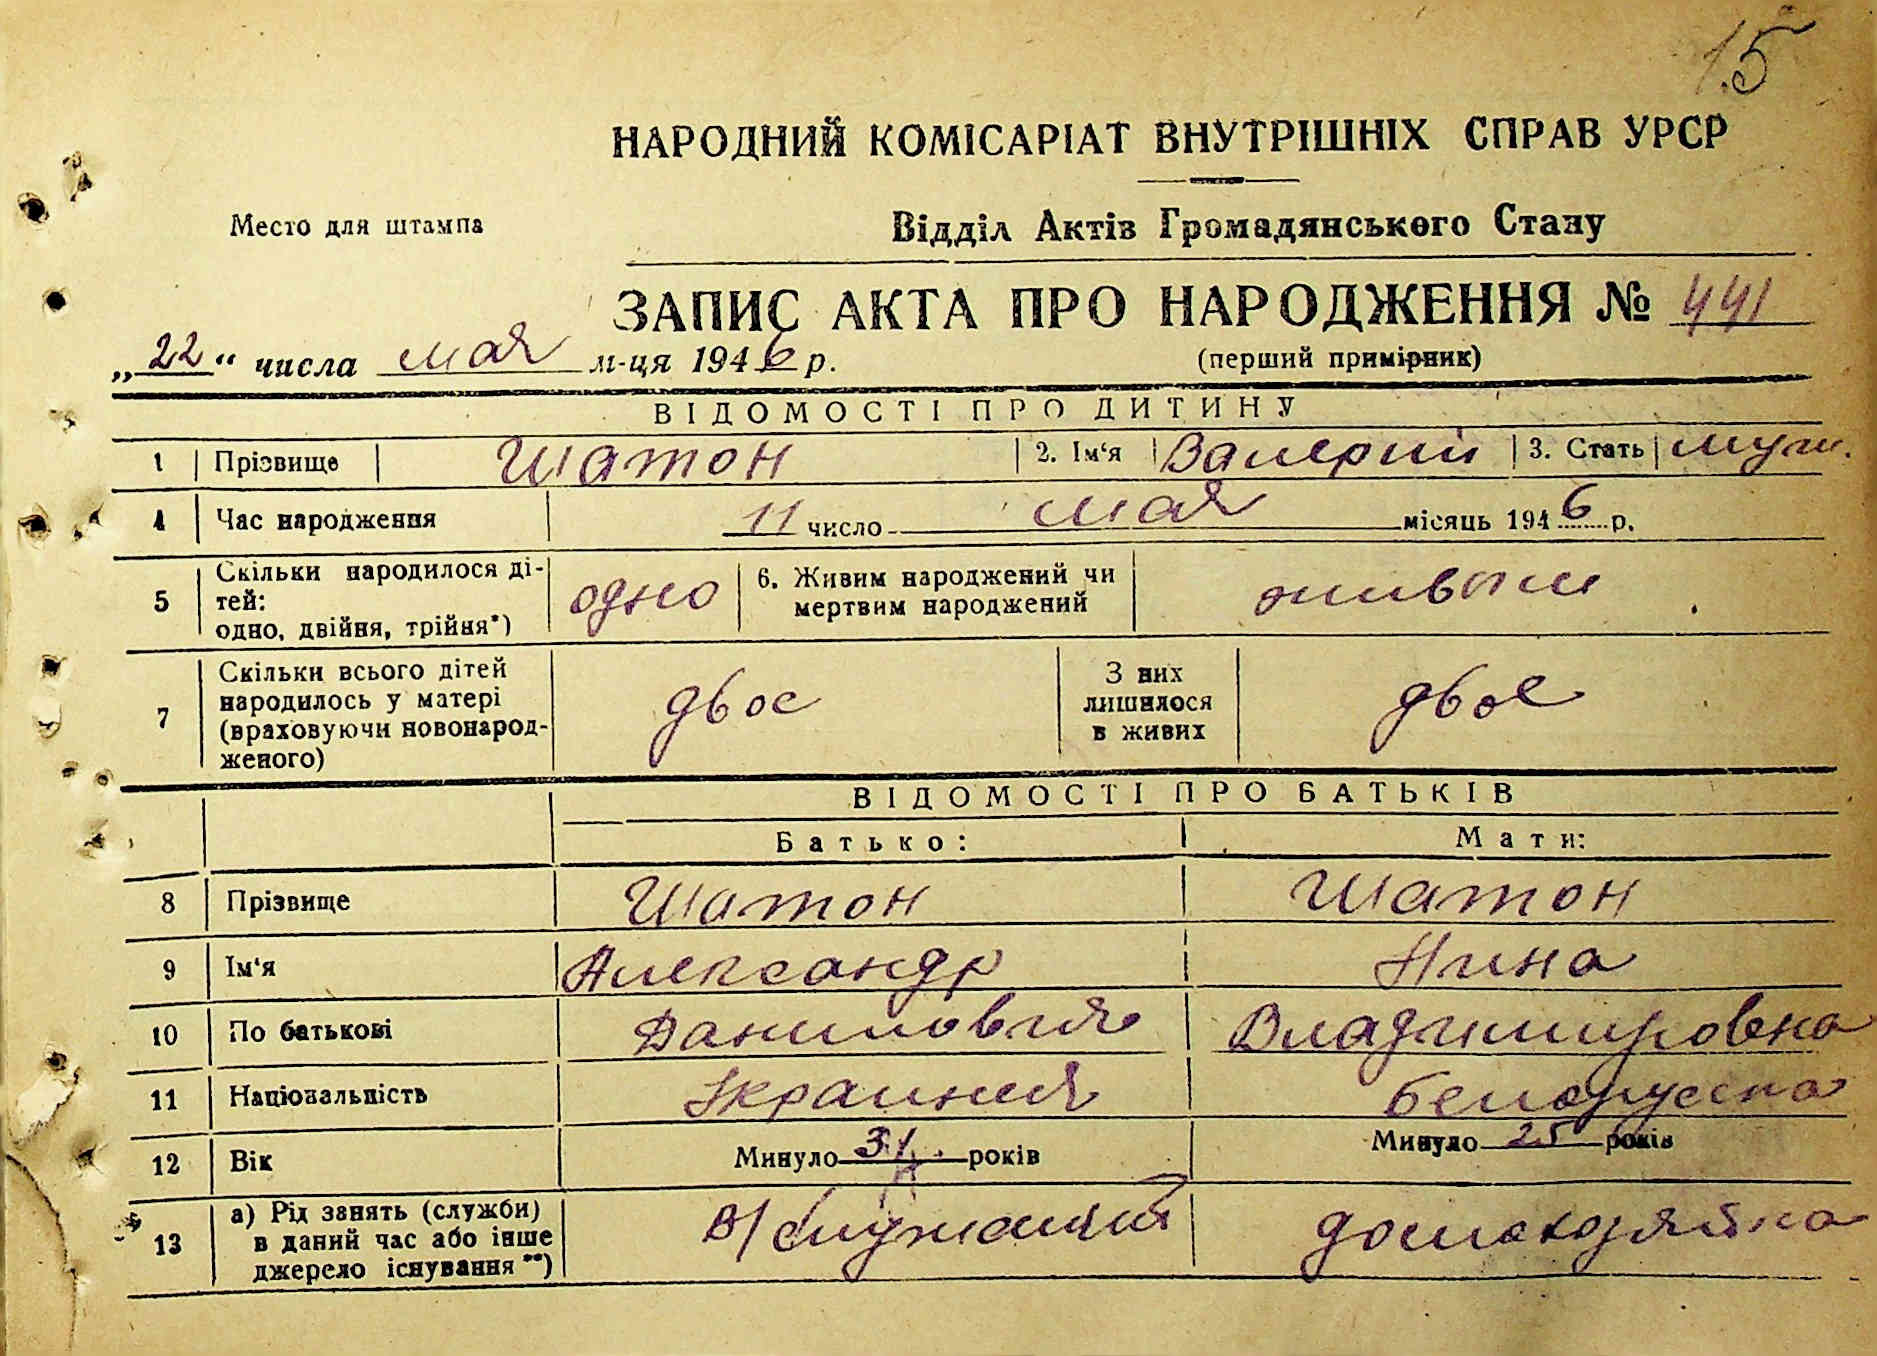 15
НАРОДНИЙ КОМІСАРІАТ ВНУТРІШНІХ СПРАВ УРСР
Место для штампа
Відділ Актів Громадянського Стану
ЗАПИС АКТА ПРО НАРОДЖЕННЯ № 441
„22“ числа мая м-ця 1946 р.
(перший примірник)
ВІДОМОСТІ ПРО ДИТИНУ
1 Прізвище Шатон 2. Ім‘я Валерий 3. Стать муж.
4 Час народження 11 число мая місяць 1946 р.
5 Скільки народилося ді-
тей:
одно, двійня, трійня*) одно
6. Живим народжений чи
мертвим народжений живым
7 Скільки всього дітей
народилось у матері
(враховуючи новонарод-
женого) двое
З них
лишилося
в живих двое
ВІДОМОСТІ ПРО БАТЬКІВ
Батько: Мати:
8 Прізвище Шатон Шатон
9 Ім‘я Александр Нина
10 По батькові Данилович Владимировна
11 Національність Украинец Белоруска
12 Вік Минуло 31 років Минуло 25 років
13 а) Рід занять (служби)
в даний час або інше
джерело існування**) В/служащий домохозяйка